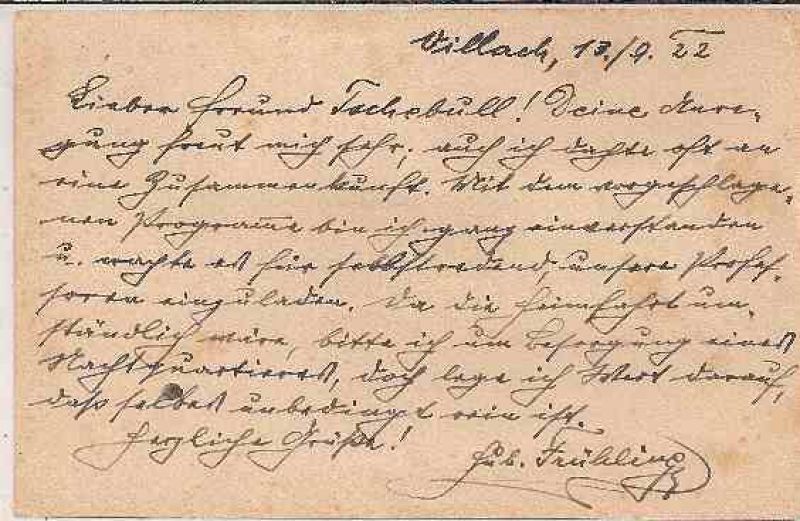 Villach, 13./9. 22
Lieber Freund Tschebull! Deine Anre-
gung freut mich sehr, auch ich dachte oft an
eine Zusammenkunft. Mit dem vorgeschlage-
nen Programme bin ich ganz einverstanden
u. erachte es für selbstredend, unsere Profes-
soren einzuladen. Da die Heimfahrt um-
ständlich wäre, bitte ich um Besorgung eines
Nachtquartieres, doch lege ich Wert darauf,
daß selbes unbedingt rein ist.
Herzliche Grüße!
Hub. Frühling